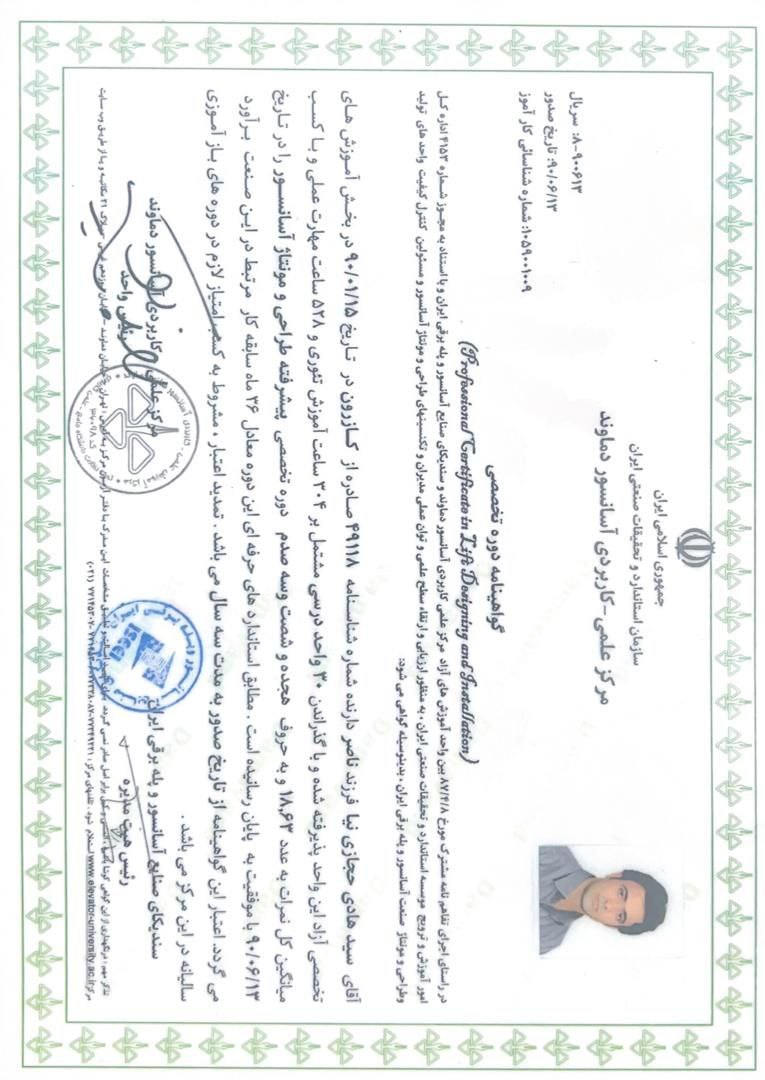 جمهوری اسلامی ایران
سازمان استاندارد و تحقیقات صنعتی ایران
مرکز علمی-کاربردی آسانسور دماوند
سریال :۸-۹۰۰۶۱۳
تاریخ صدور :۹۰/۰۶/۱۳
شماره شناسائی کار آموز :۱۰۵۹۰۰۱۰۰۹
گواهینامه دوره تخصصی
(Professional Certificate in Lift Designing and Installation)
در راستای اجرای تفاهم نامه مشترک مورخ ۸۷/۴/۸ بین واحد آموزش های آزاد مرکز علمی کاربردی آسانسور دماوند و سندیکای صنایع آسانسور و پله برقی ایران و با استناد به مجوز شماره ۴۱۵۳ اداره کل
امور آموزش و ترویج موسسه استاندارد و تحقیقات صنعتی ایران ، به منظور ارزیابی و ارتقاء سطح علمی و توان عملی مدیران و تکنسینهای طراحی و مونتاژ آسانسور و مسئولین کنترل کیفیت واحد های تولید
وطراحی و مونتاژ صنعت آسانسور و پله برقی ایران ، بدینوسیله گواهی می شود:
آقای سید هادی حجازی نیا فرزند ناصر دارنده شماره شناسنامه ۴۹۱۱۸ صادره از کازرون در تاریخ ۹۰/۰۱/۱۵ در بخش آموزش های
تخصصی آزاد این واحد پذیرفته شده و با گذراندن ۳۰ واحد درسی مشتمل بر ۳۰۴ ساعت آموزش تئوری و ۵۲۸ ساعت مهارت عملی و با کسب
میانگین کل نمرات به عدد ۱۸,۶۳ و به حروف هجده و شصت وسه صدم دوره تخصصی پیشرفته طراحی و مونتاژ آسانسور را در تاریخ
۹۰/۰۶/۱۳ با موفقیت به پایان رسانیده است . مطابق استاندارد های حرفه ای این دوره معادل ۳۶ ماه سابقه کار مرتبط در این صنعت برآورد
می گردد. اعتبار این گواهینامه از تاریخ صدور به مدت سه سال می باشد . تمدید اعتبار ، مشروط به کسب امتیاز لازم در دوره های باز آموزی
سالیانه در این مرکز می باشد .
سندیکای صنایع آسانسور و پله برقی ایران
رئیس هیئت مدیره
مرکز علمی کاربردی آسانسور دماوند
رئیس واحد
www.elevator-university.ac.ir